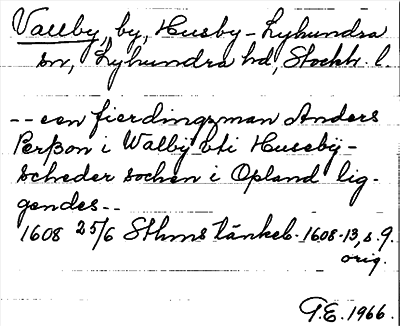 Vallby, by, Husby-Lyhundra
sn, Lyhundra hd, Stockh. l.
-- een fierdingsman Anders
Perßon i Walbÿ vti Husebÿ-
scheder sochen i Opland lig-
gendes--
1608 25/6 Sthms tänkeb. 1608-13, s. 9.
orig.
G.E. 1966.